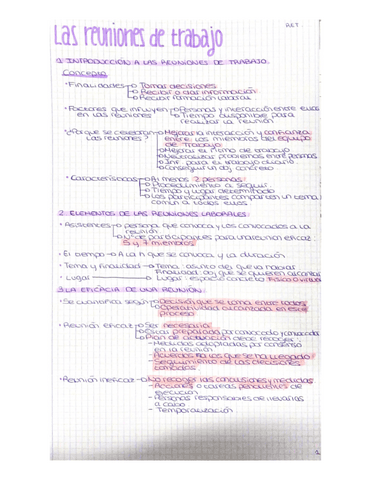 RET
Las reuniones de trabajo
1. INTRODUCCIÓN A LAS REUNIONES DE TRABAJO.
Concepto
• Finalidades → Tomar decisiones
→ Recibir o dar información
→ Recibir formación laboral
• Factores que influyen → Personas y interacción entre ellas
en las reuniones → Tiempo disponible para
realizar la reunión
• ¿Por qué se celebran → Mejorar la interacción y confianza
las reuniones? entre los miembros del equipo
de trabajo
→ Mejorar el ritmo de trabajo
→ problemas entre personas
→ Inf. para el trabajo diario
→ Conseguir un obj. concreto
• Características → Al menos 2 personas
→ Procedimiento a seguir
→ Tiempo y lugar determinado
→ Los participantes comparten un tema
común a todos ellos
2. ELEMENTOS DE LAS REUNIONES LABORALES:
• Asistentes → persona que convoca y los convocados a la
reunión
→ Nº de participantes para una reunión eficaz
5 y 7 miembros
• El tiempo → A la h que se convoca y la duración
• Tema y finalidad → Tema: asunto del que va a tratar
Finalidad: obj. que se quieren alcanzar
• Lugar → espacio concreto físico o virtual
3. LA EFICACIA DE UNA REUNIÓN.
• Se cuantifica según → Decisión que se toma entre todos
→ Operatividad alcanzada en este
proceso
• Reunión eficaz → Ser necesaria
→ Estar preparada por convocado y convocada
→ Plan de actuación debe recoger:
- Medidas adoptadas por consenso
en la reunión
- Acuerdos a los que se ha llegado
- Seguimiento de las decisiones
tomadas
• Reunión ineficaz → No recoger las conclusiones y medidas
- Acciones o tareas pendientes de
ejecución
- Personas responsables de llevarlas
a cabo
- Temporalización